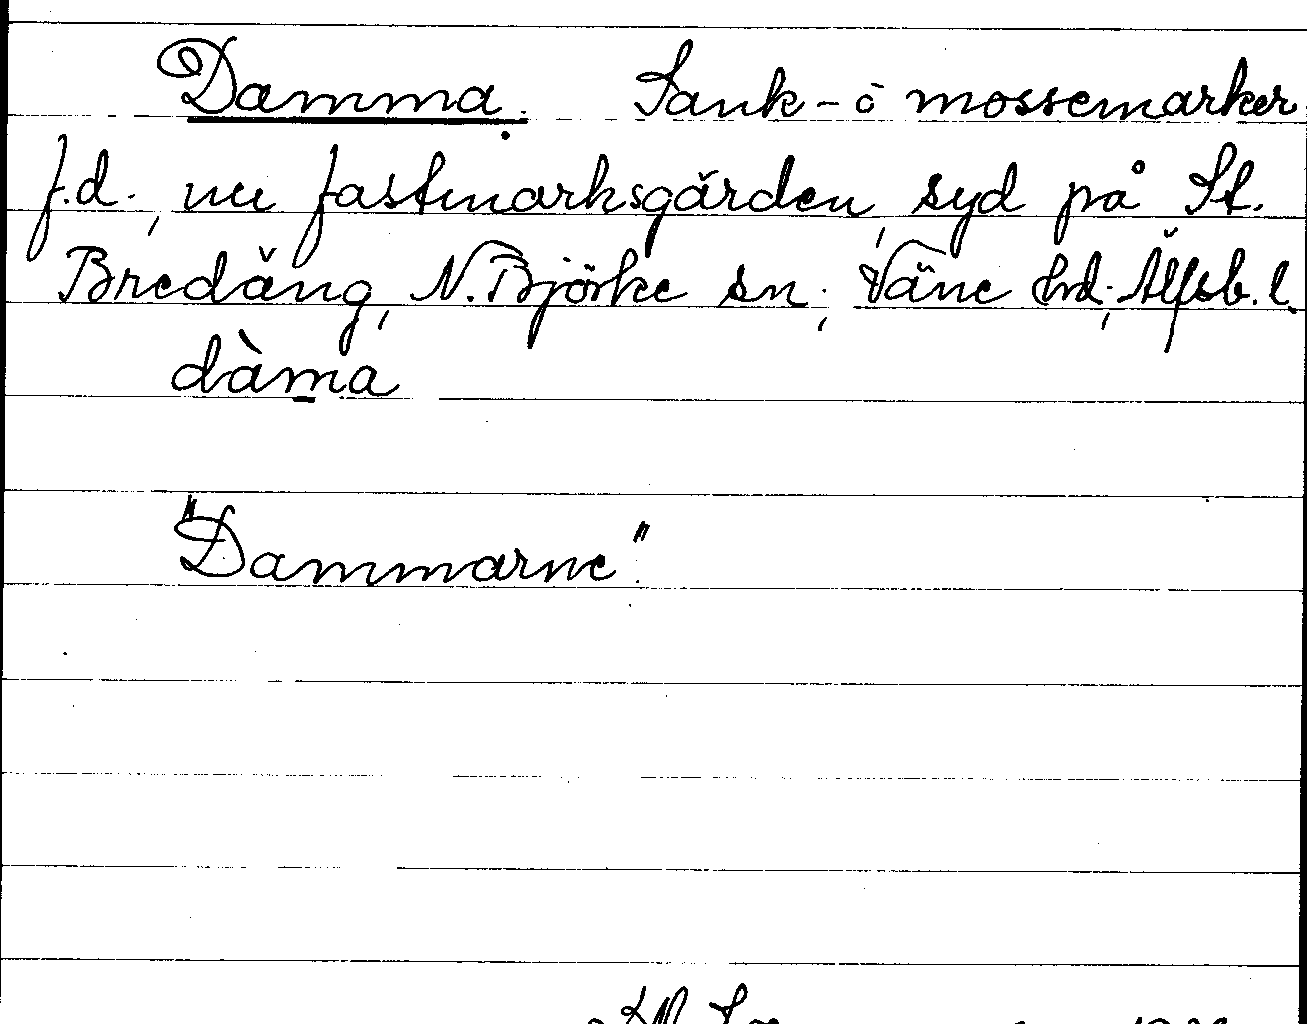 Damma. Sank- ö mossemarker
f.d., nu fastmarksgärden, syd på St.
Bredäng, N. Björke sn, Väne hd, Älfsb. l.
dàma
"Dammarne".